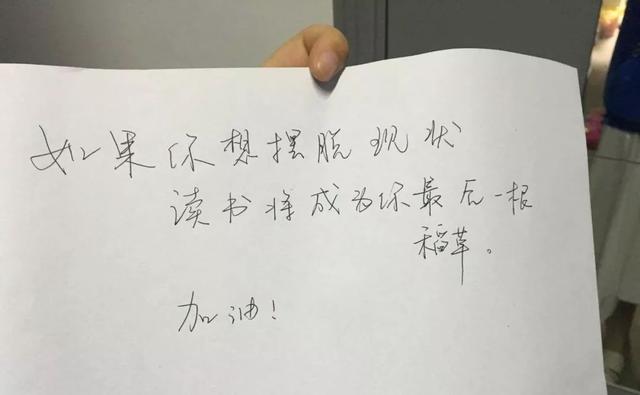 如果你想摆脱现状
读书将成为你最后一根
稻草。
加油!